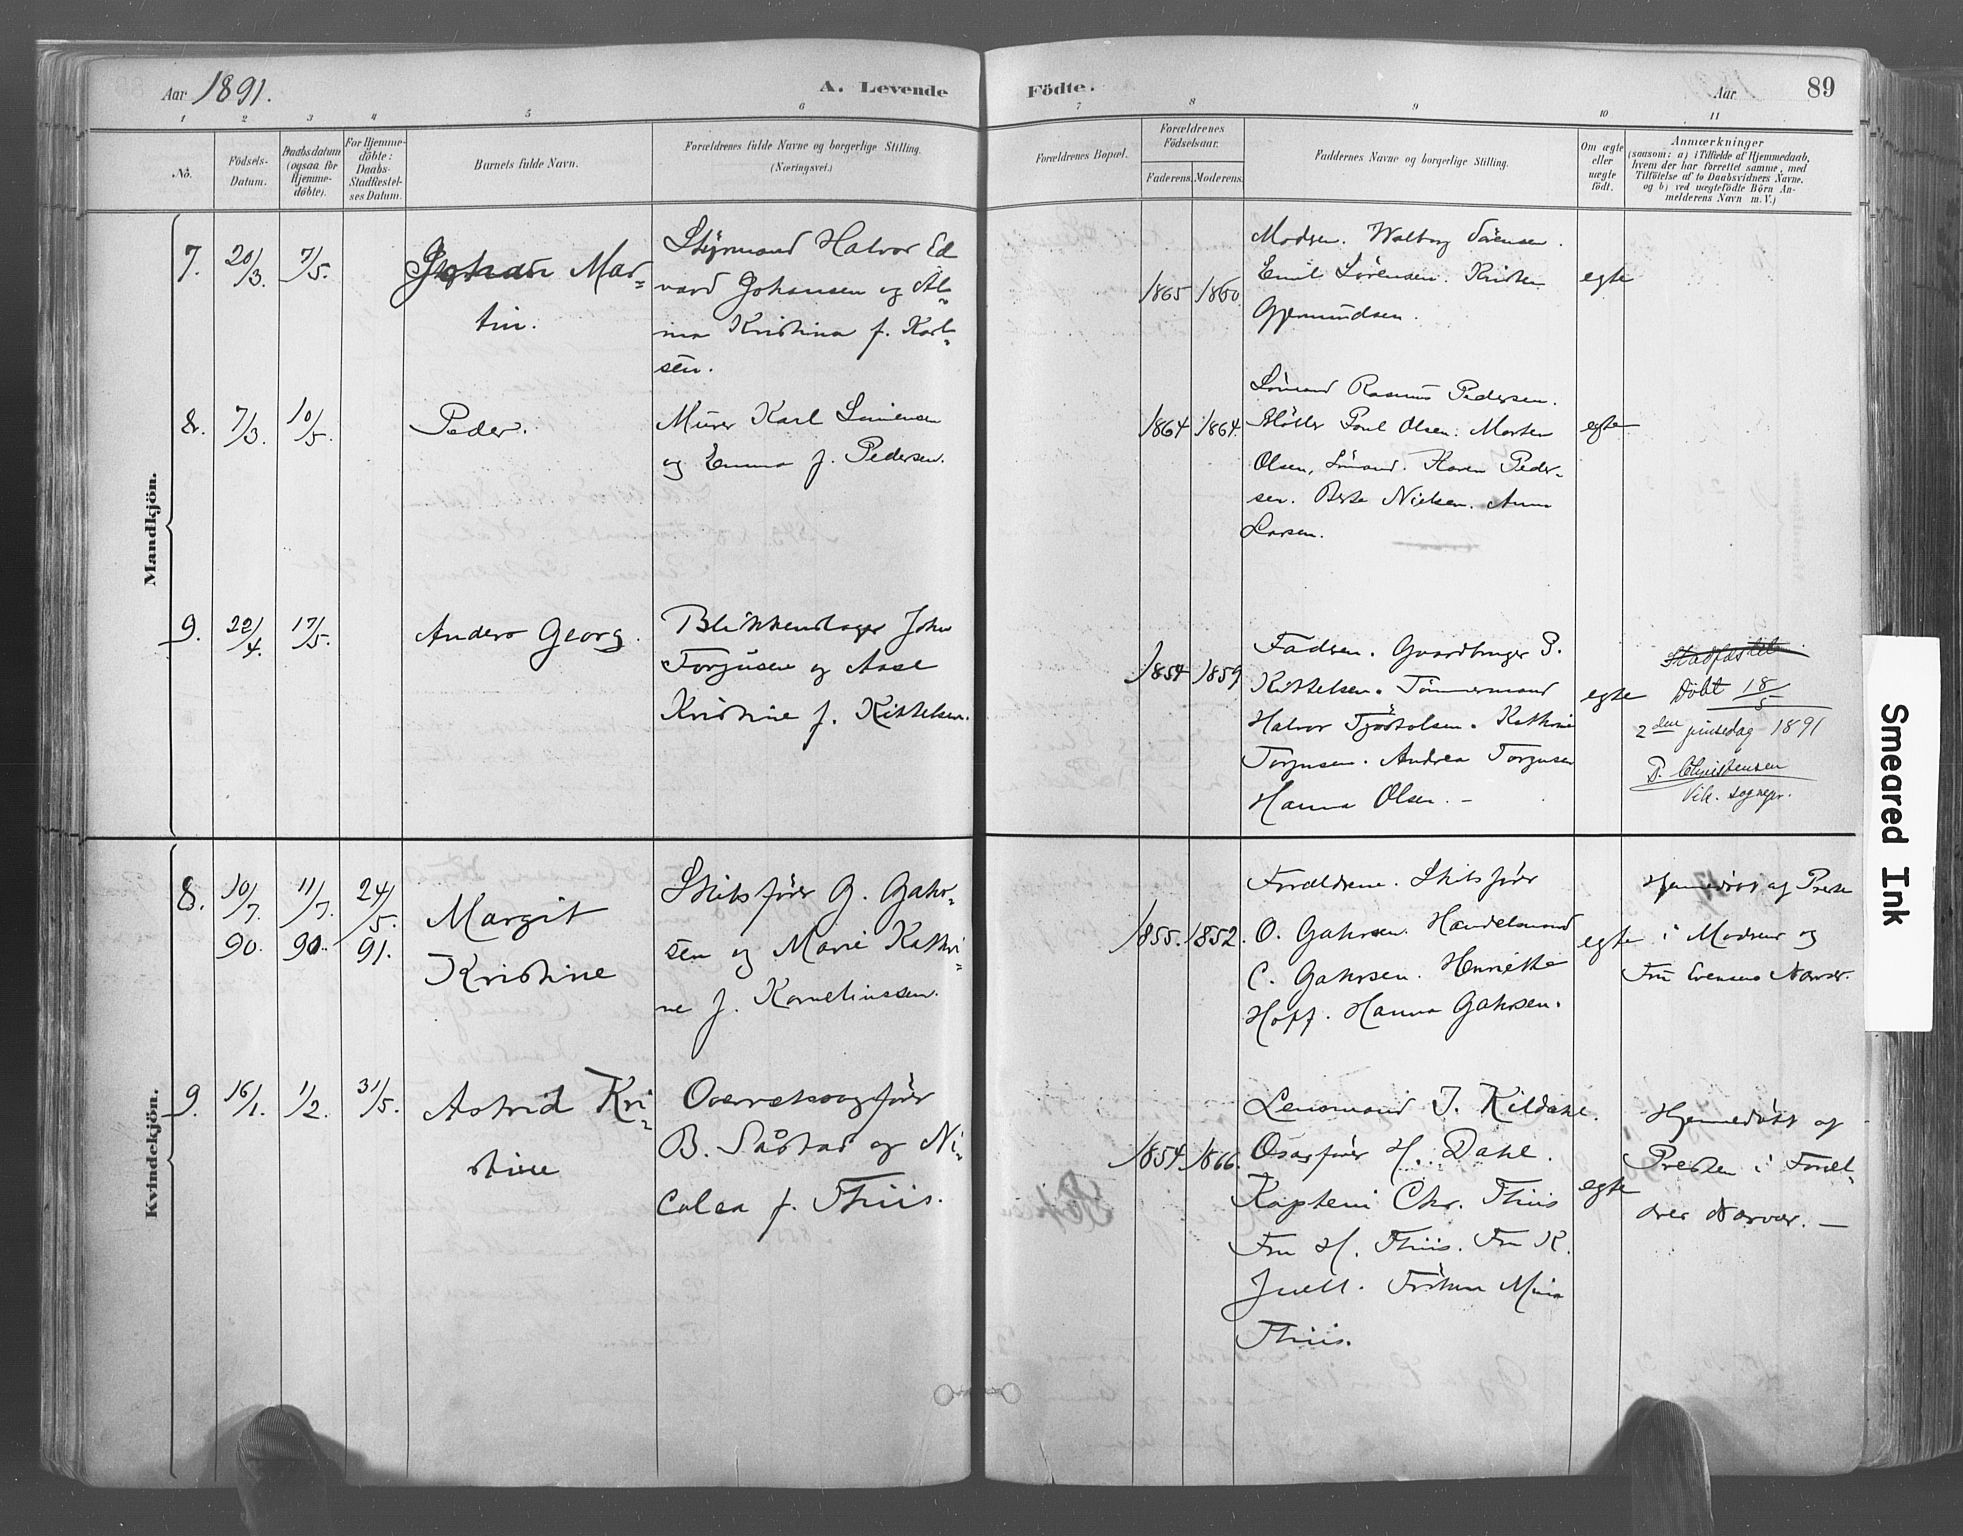 Aar 1891.
A. Levende Födte.
Aar
89
1 2 3 4 5 6 7 8 9 10 11
No.
Födsels-
Datum.
Daabsdatum
(ogsaa for
Hjemme-
döbte).
For Hjemme-
döbte:
Daabs-
Stadfæstel-
ses Datum.
Barnets fulde Navn.
Forældrenes fulde Navne og borgerlige Stilling.
(Næringsvei.)
Forældrenes Bopæl.
Forældrenes
Födselsaar.
Faderens. Moderens.
Faddernes Navne og borgerlige Stilling.
Om ægte
eller
uægte
födt.
Anmærkninger
(saasom: a) i Tilfælde af Hjemmedaab,
hvem der har forrettet samme, med
Tilföielse af to Daabsvidners Navne,
og b) ved uægtefödte Börn An-
melderens Navn m. V.)
Mandkjön.
7. 20/3. 7/5.
Johan Mar-
tin.
Styrmand Halvor Ed
vard Johansen og Al-
ma Kristina f. Karl-
sen.
1865 1860.
Modren. Walborg Sörensen.
Emil Sörensen. Kristen
Gjermundsen.
egte
8. 7/3. 10/5.
Peder.
Murer Karl Simensen
og Emma f. Pedersen.
1864 1864.
Sömand Rasmus Pedersen.
Poul Olsen. Morten
Olsen, Sömand. Karen Peder-
sen. Berte Nielsen. Anna
Larsen.
egte
9. 22/4. 17/5.
Anders Georg.
Blikkenslager John
Torjusen og Aase
Kristine f. Kittelsen.
1854 1859
Fadren. Gaardbruger P.
Kittelsen. Tömmermand
Halvor Tjöstolsen. Kathrine
Torjusen. Andrea Torjusen
Hanna Olsen. –
egte
Stadfæstet
Döbt 18/5
2den pinsedag 1891
P. Christensen
Vik. sognepr.
Kvindekjön.
8. 10/7. 90. 11/7. 90. 24/5. 91.
Margit
Kristine
Skibsförer G. Gahr-
sen og Marie Kathri-
ne f. Korneliussen.
1855. 1852.
Forældrene. Skibsförer
O. Gahrsen. Handelsmand
C. Gahrsen. Henriette
Hoff. Hanna Gahrsen.
egte
Hjemedöbt af Presten
i Modrens og
Fru Evensens Nærvær.
9. 16/1. 1/2. 31/5.
Astrid Kri-
stine
Overretssagförer
B. Såstad og Ni-
colea f. Thiis.
1854. 1866.
Lensmand J. Kildahl.
H. Dahl.
Kaptein Chr. Thiis
Fru H. Thiis. Fru K.
Juell. Fröken Mina
Thiis.
egte
Hjemedöbt af
Presten i Foræl-
drer Nærvær. –
Smeared Ink